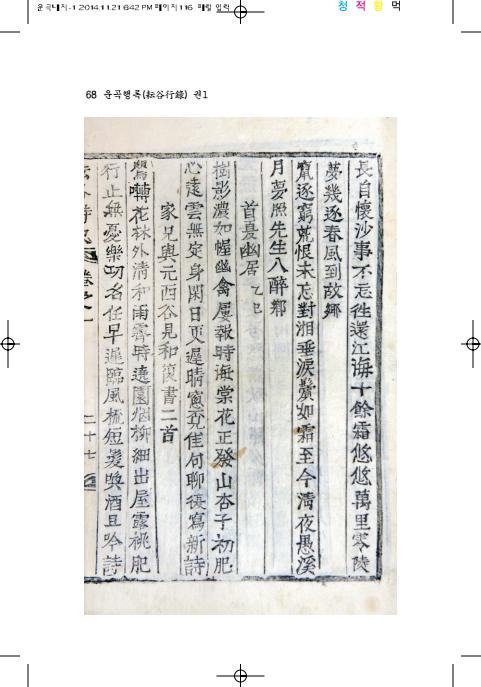 운곡내지-1 2014.11.21 6:42 PM 페이지116 매킬 입력
청 적 황 먹
68 운곡행록(耘谷行錄) 권1
長自懷沙事不忘往還江海十餘霜悠悠萬里零陵
夢幾逐春風到故鄉
竄逐窮荒恨未忘對湘垂淚鬢如霜至今淸夜愚溪
月夢照先生入醉鄕
首夏幽居 乙巳
樹影濃如幄幽禽屢報時海棠花正發山杏子初肥
心遠雲無定身閑日更遲晴窓覓佳句聊復寫新詩
家兄與元西谷見和復書二首
鶯囀花林外淸和雨霽時遶園烟柳細出屋露桃肥
行止無憂樂功名任早遲臨風梳短髮喚酒且吟詩
二十七